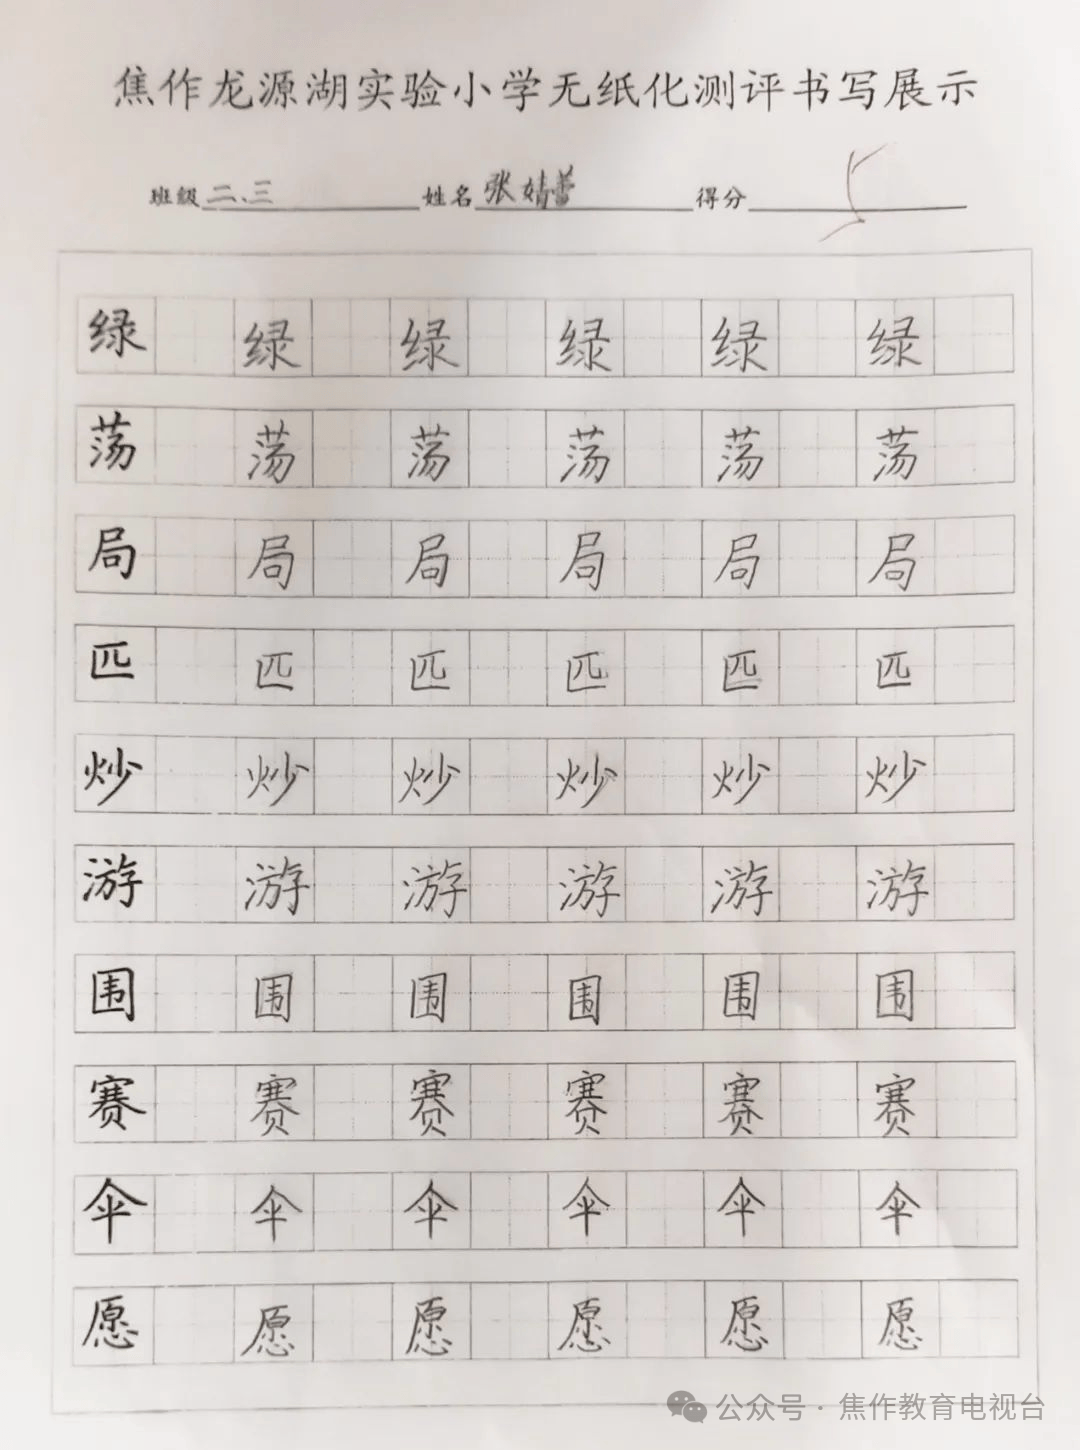 焦作龙源湖实验小学无纸化测评书写展示
班级 二、三 姓名 张婧蕾 得分
绿 绿 绿 绿 绿 绿
荡 荡 荡 荡 荡 荡
局 局 局 局 局 局
匹 匹 匹 匹 匹 匹
炒 炒 炒 炒 炒 炒
游 游 游 游 游 游
围 围 围 围 围 围
赛 赛 赛 赛 赛 赛
伞 伞 伞 伞 伞 伞
愿 愿 愿 愿 愿 愿
公众号·焦作教育电视台